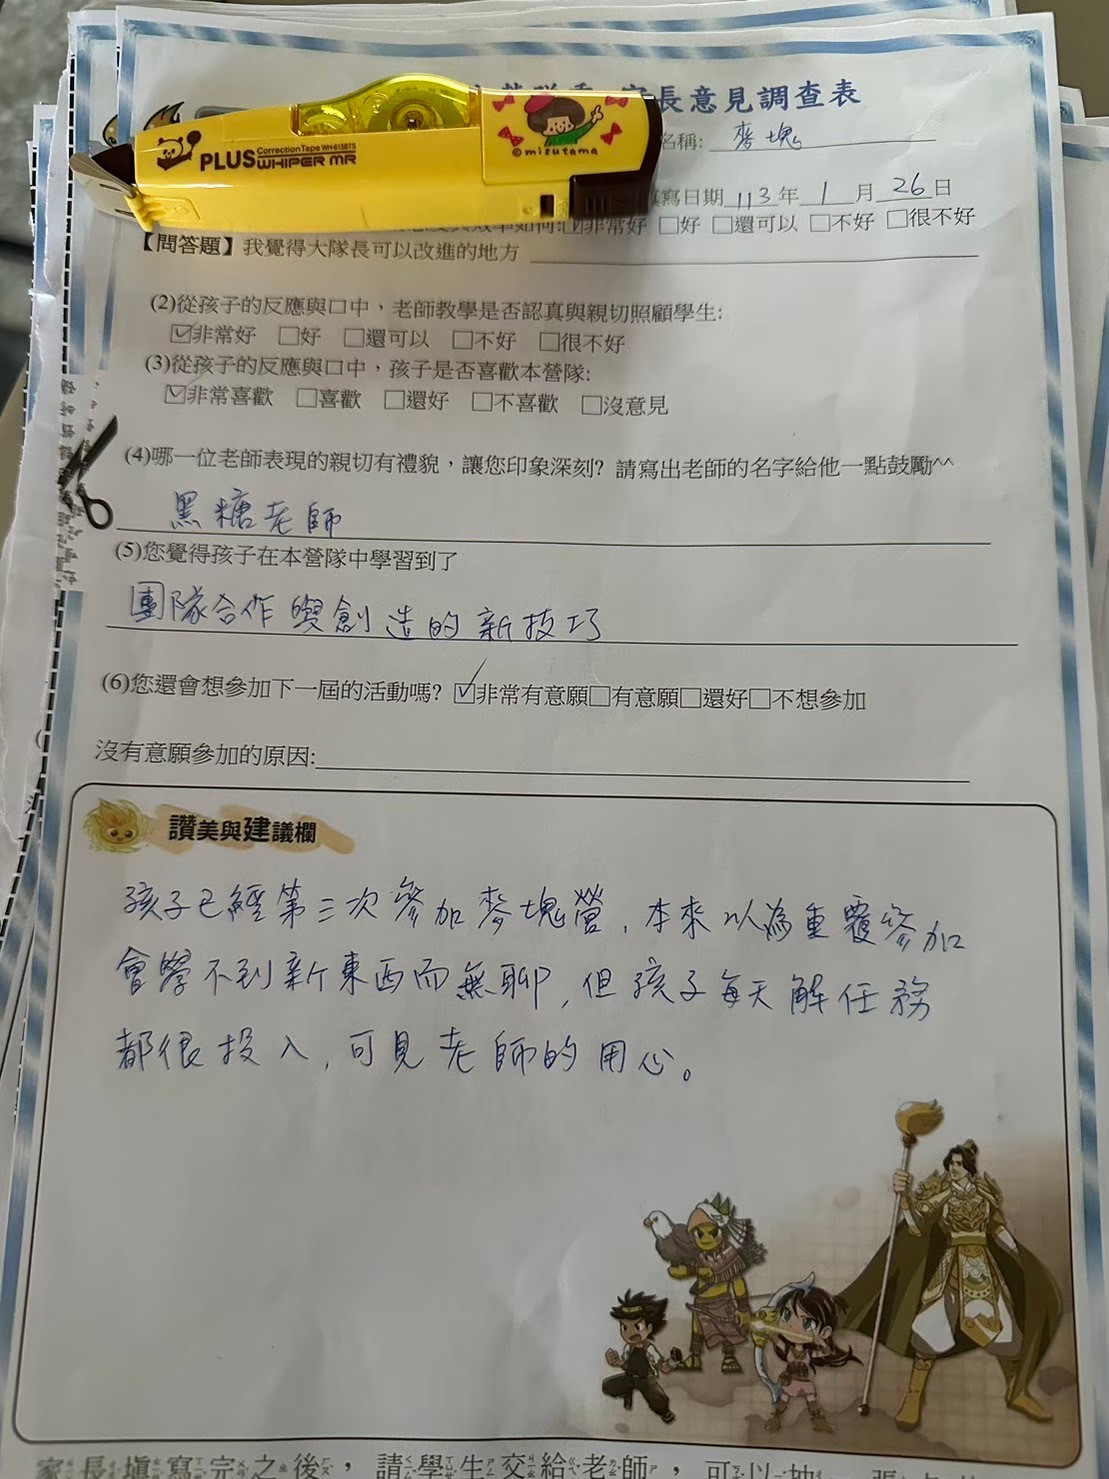 家長意見調查表
名稱: 麥塊
填寫日期 113 年 1 月 26 日
PLUS Correction Tape WH-615BTS
WHIPER MR
©mizutama
☑非常好 □好 □還可以 □不好 □很不好
【問答題】我覺得大隊長可以改進的地方
(2)從孩子的反應與口中，老師教學是否認真與親切照顧學生:
☑非常好 □好 □還可以 □不好 □很不好
(3)從孩子的反應與口中，孩子是否喜歡本營隊:
☑非常喜歡 □喜歡 □還好 □不喜歡 □沒意見
(4)哪一位老師表現的親切有禮貌，讓您印象深刻? 請寫出老師的名字給他一點鼓勵^^
黑糖老師
(5)您覺得孩子在本營隊中學習到了
團隊合作與創造的新技巧
(6)您還會想參加下一屆的活動嗎? ☑非常有意願□有意願□還好□不想參加
沒有意願參加的原因:
讚美與建議欄
孩子已經第三次參加麥塊營，本來以為重覆參加
會學不到新東西而無聊，但孩子每天解任務
都很投入，可見老師的用心。
家長填寫完之後，請學生交給老師，可以抽